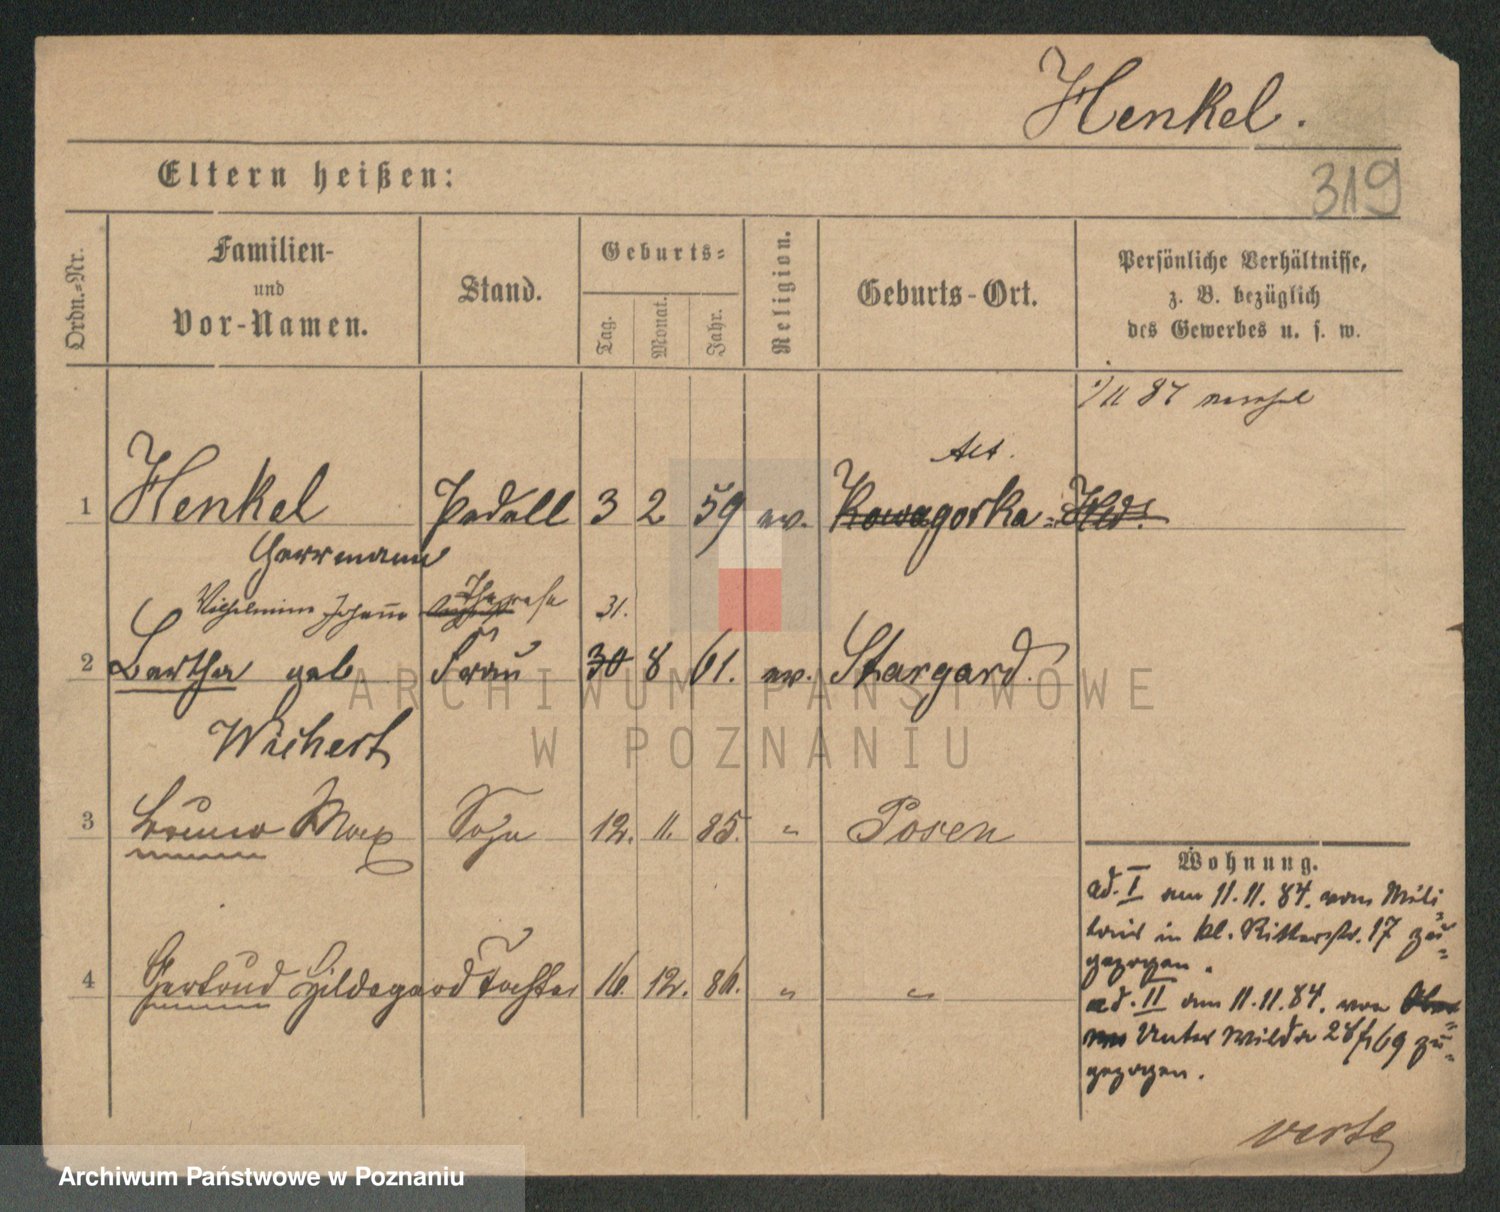 Henkel.
319
Eltern heißen:
Ordn.-Nr.
Familien-
und
Vor-Namen.
Stand.
Geburts-
Tag.
Monat.
Jahr.
Religion.
Geburts-Ort.
Persönliche Verhältnisse,
z. B. bezüglich
des Gewerbes u. s. w.
1/11 87
Alt.
1 Henkel Pedell 3 2 59 ev. Kowagorka
Herrmann
Wilhelmine Johanne Therese 31.
2 Bertha geb Frau 30 8 61. ev. Stargard.
Wichert
3 Bruno Max Sohn 12. 11. 85. " Posen
4 Gertrud Hildegard Tochter 16. 12. 86. " "
Wohnung.
ad. I am 11.11.84. vom Mili-
tair in kl. Ritterstr. 17 zu-
gezogen.
ad. II am 11.11.84. von
Unter Wilda 28/169 zu-
gezogen.
verte
ARCHIWUM PAŃSTWOWE
W POZNANIU
Archiwum Państwowe w Poznaniu